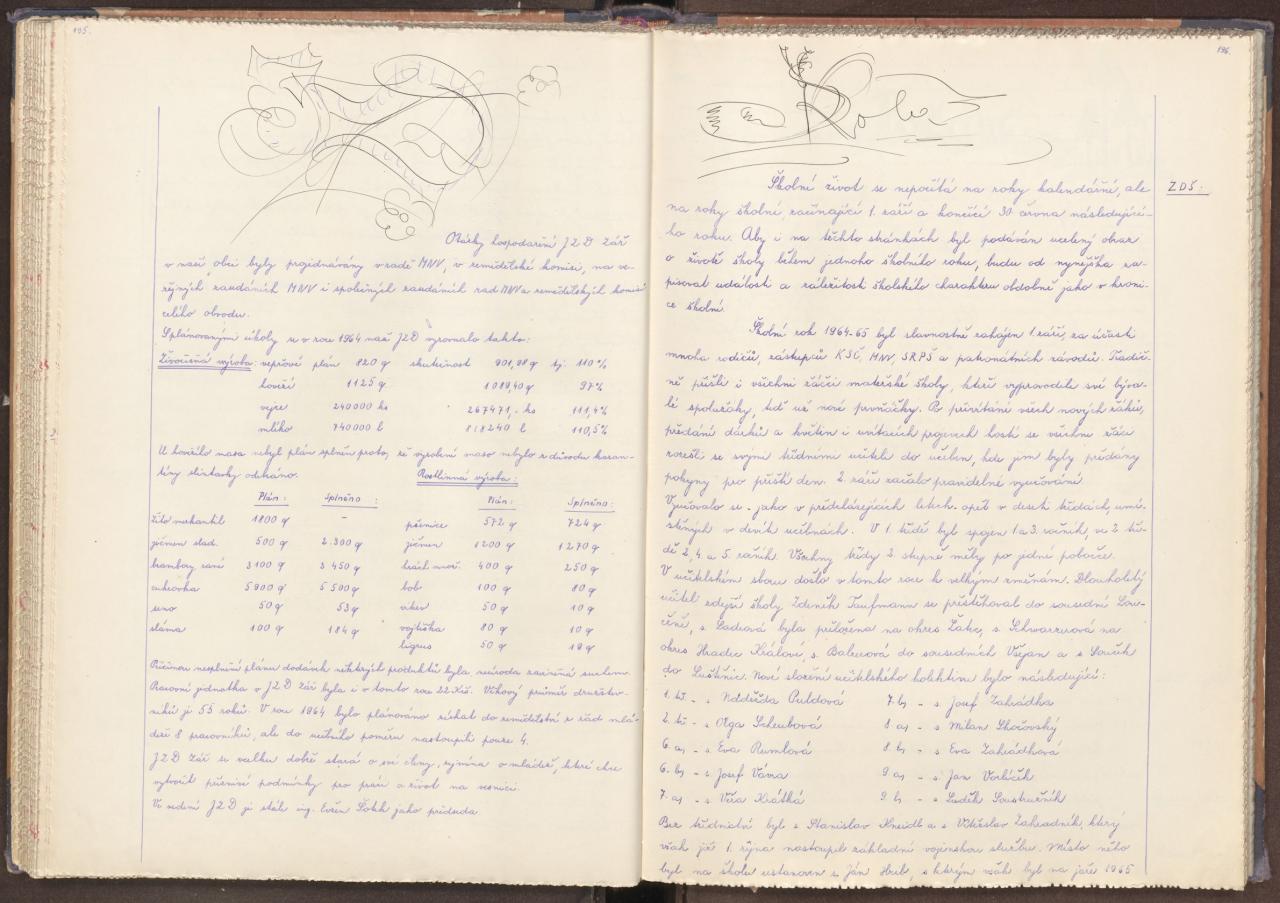 195.
Otázky hospodaření JZD Zář
v naší obci byly projednávány v radě MNV, v zemědělské komisi, na ve-
řejných zasedáních MNV i společných zasedáních rad MNV a zemědělských komisí
celého obvodu.
S plánovanými úkoly se v roce 1964 naše JZD vyrovnalo takto:
Živočišná výroba: vepřové plán 820 q skutečnost 901,98 q tj. 110%
hovězí 1125 q 1089,40 q 97%
vejce 240000 ks 267471,- ks 111,4%
mléko 740000 l 818240 l 110,5%
U hovězího masa nebyl plán splněn proto, že vyrobené maso nebylo z důvodu karan-
tény slintavky odebráno.
Rostlinná výroba:
Plán: Splněno: Plán: Splněno:
žito 1800 q - pšenice 572 q 724 q
ječmen slad. 500 q 2.300 q ječmen 1200 q 1270 q
brambory rané 3100 q 3450 q hrách 400 q 250 q
cukrovka 5900 q 5500 q bob 100 q 80 q
seno 50 q 53 q vikev 50 q 10 q
sláma 100 q 184 q vojtěška 80 q 10 q
ligrus 50 q 18 q
Příčinou nesplnění plánu dodávek některých produktů byla neúroda zaviněná suchem.
Pracovní jednotka v JZD Zář byla i v tomto roce 22 Kčs. Věkový průměr družstev-
níků je 55 roků. V roce 1964 bylo plánováno získat do zemědělství z řad mlá-
deže 8 pracovníků, ale do učebního poměru nastoupili pouze 4.
JZD Zář se velku dobře stará o své členy, zejména o mládež, které chce
vytvořit příznivé podmínky pro práci a život na vesnici.
Ve vedení JZD je stále ing. Evžen Šotek jako předseda.
196.
Rola
Školní život se nepočítá na roky kalendářní, ale
na roky školní, začínající 1. září a končící 30 června následující-
ho roku. Aby i na těchto stránkách byl podáván ucelený obraz
o životě školy během jednoho školního roku, budu od nynějška za-
pisovat události a záležitosti školského charakteru obdobně jako v kroni-
ce školní.
ZDŠ:
Školní rok 1964-65 byl slavnostně zahájen 1. září, za účasti
mnoha rodičů, zástupců KSČ, MNV, SRPŠ a patronátních závodů. Tradič-
ně přišli i všichni žáčci mateřské školy, kteří vyprovodili své býva-
lé spolužáky, teď už nové prvňáčky. Po přivítání všech nových žáků,
předání dárků a květin i uvítacích projevech hostí se všichni žáci
rozešli se svými třídními učiteli do učeben, kde jim byly předány
pokyny pro příští den. 2. září začalo pravidelné vyučování.
Vyučovalo se - jako v předcházejících letech - opět v deseti třídách, umí-
stěných v devíti učebnách. V 1. třídě byl spojen 1 a 3. ročník, ve 2. tří-
dě 2, 4 a 5. ročník. Všechny třídy 2. stupně měly po jedné pobočce.
V učitelském sboru došlo v tomto roce k velkým změnám. Dlouholetý
učitel zdejší školy Zdeněk Taufmann se přestěhoval do sousední Lou-
čeně, s. Ladrová byla přeložena na okres Žatec, s. Schwarzerová na
okres Hradec Králové, s. Balounová do sousedních Všejan a s. Souček
do Luštěnic. Nové složení učitelského kolektivu bylo následující:
1. tř - s. Naděžda Puldová 7. b) - s. Josef Zahrádka
2. tř - s. Olga Scheubová 8. a) - s. Milan Skořovský
6. a) - s. Eva Rumlová 8. b) - s. Eva Zahrádková
6. b) - s. Josef Vávra 9. a) - s. Jan Vorlíček
7. a) - s. Věra Krátká 9. b) - s. Luděk Soustružník
Bez třídnictví byl s. Stanislav Kneidl a s. Vítězslav Zahradník, který
však již 1. října nastoupil základní vojenskou službu. Místo něho
byl na školu ustanoven s. Ján Hril, s kterým však byl na jaře 1965